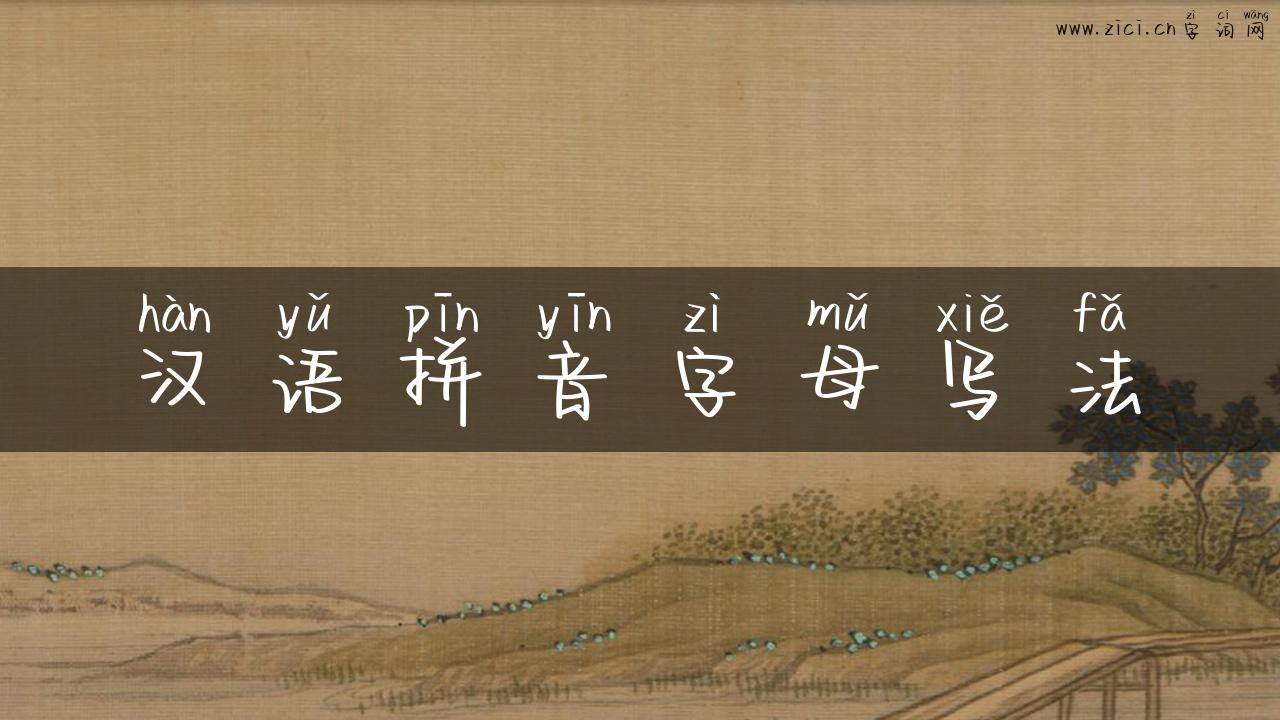 zì cí wǎng
www.zici.cn字词网
hàn yǔ pīn yīn zì mǔ xiě fǎ
汉语拼音字母写法